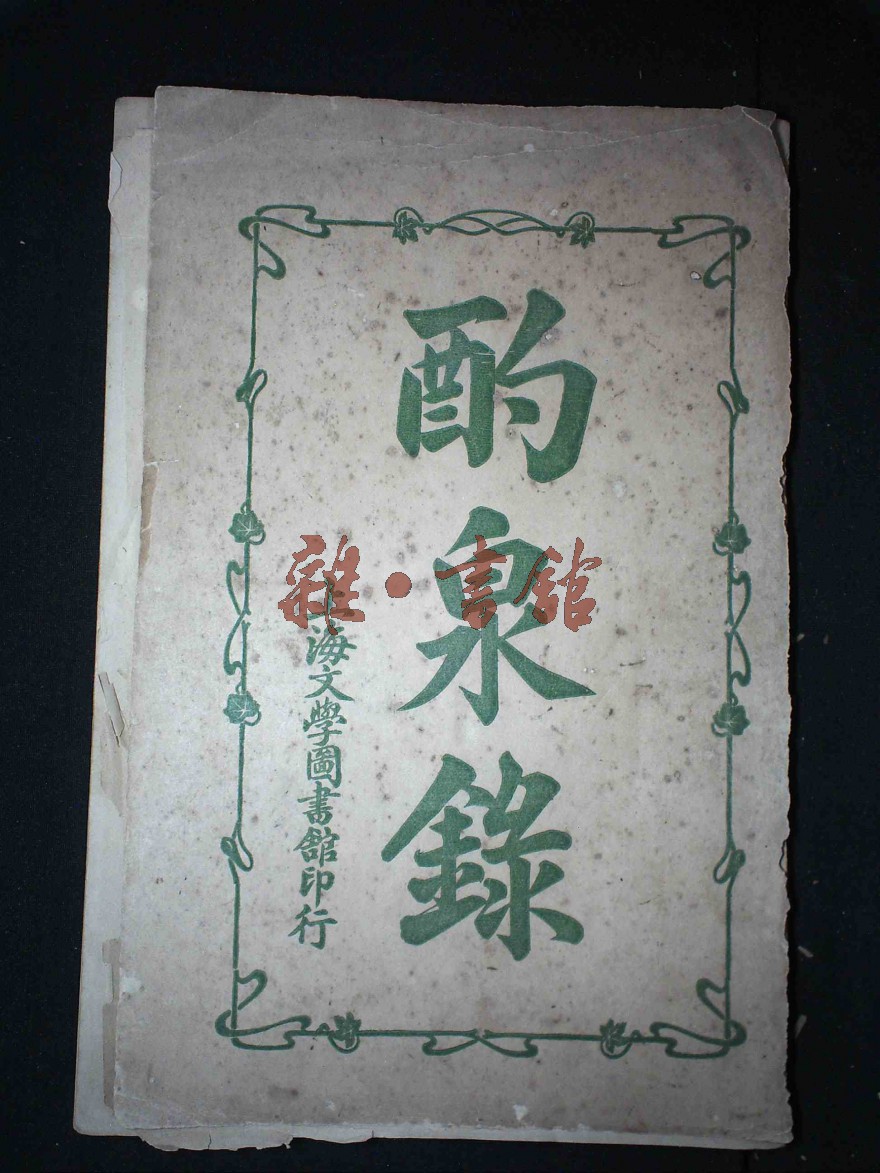 酌泉錄
上海文學圖書館印行
雜·書館